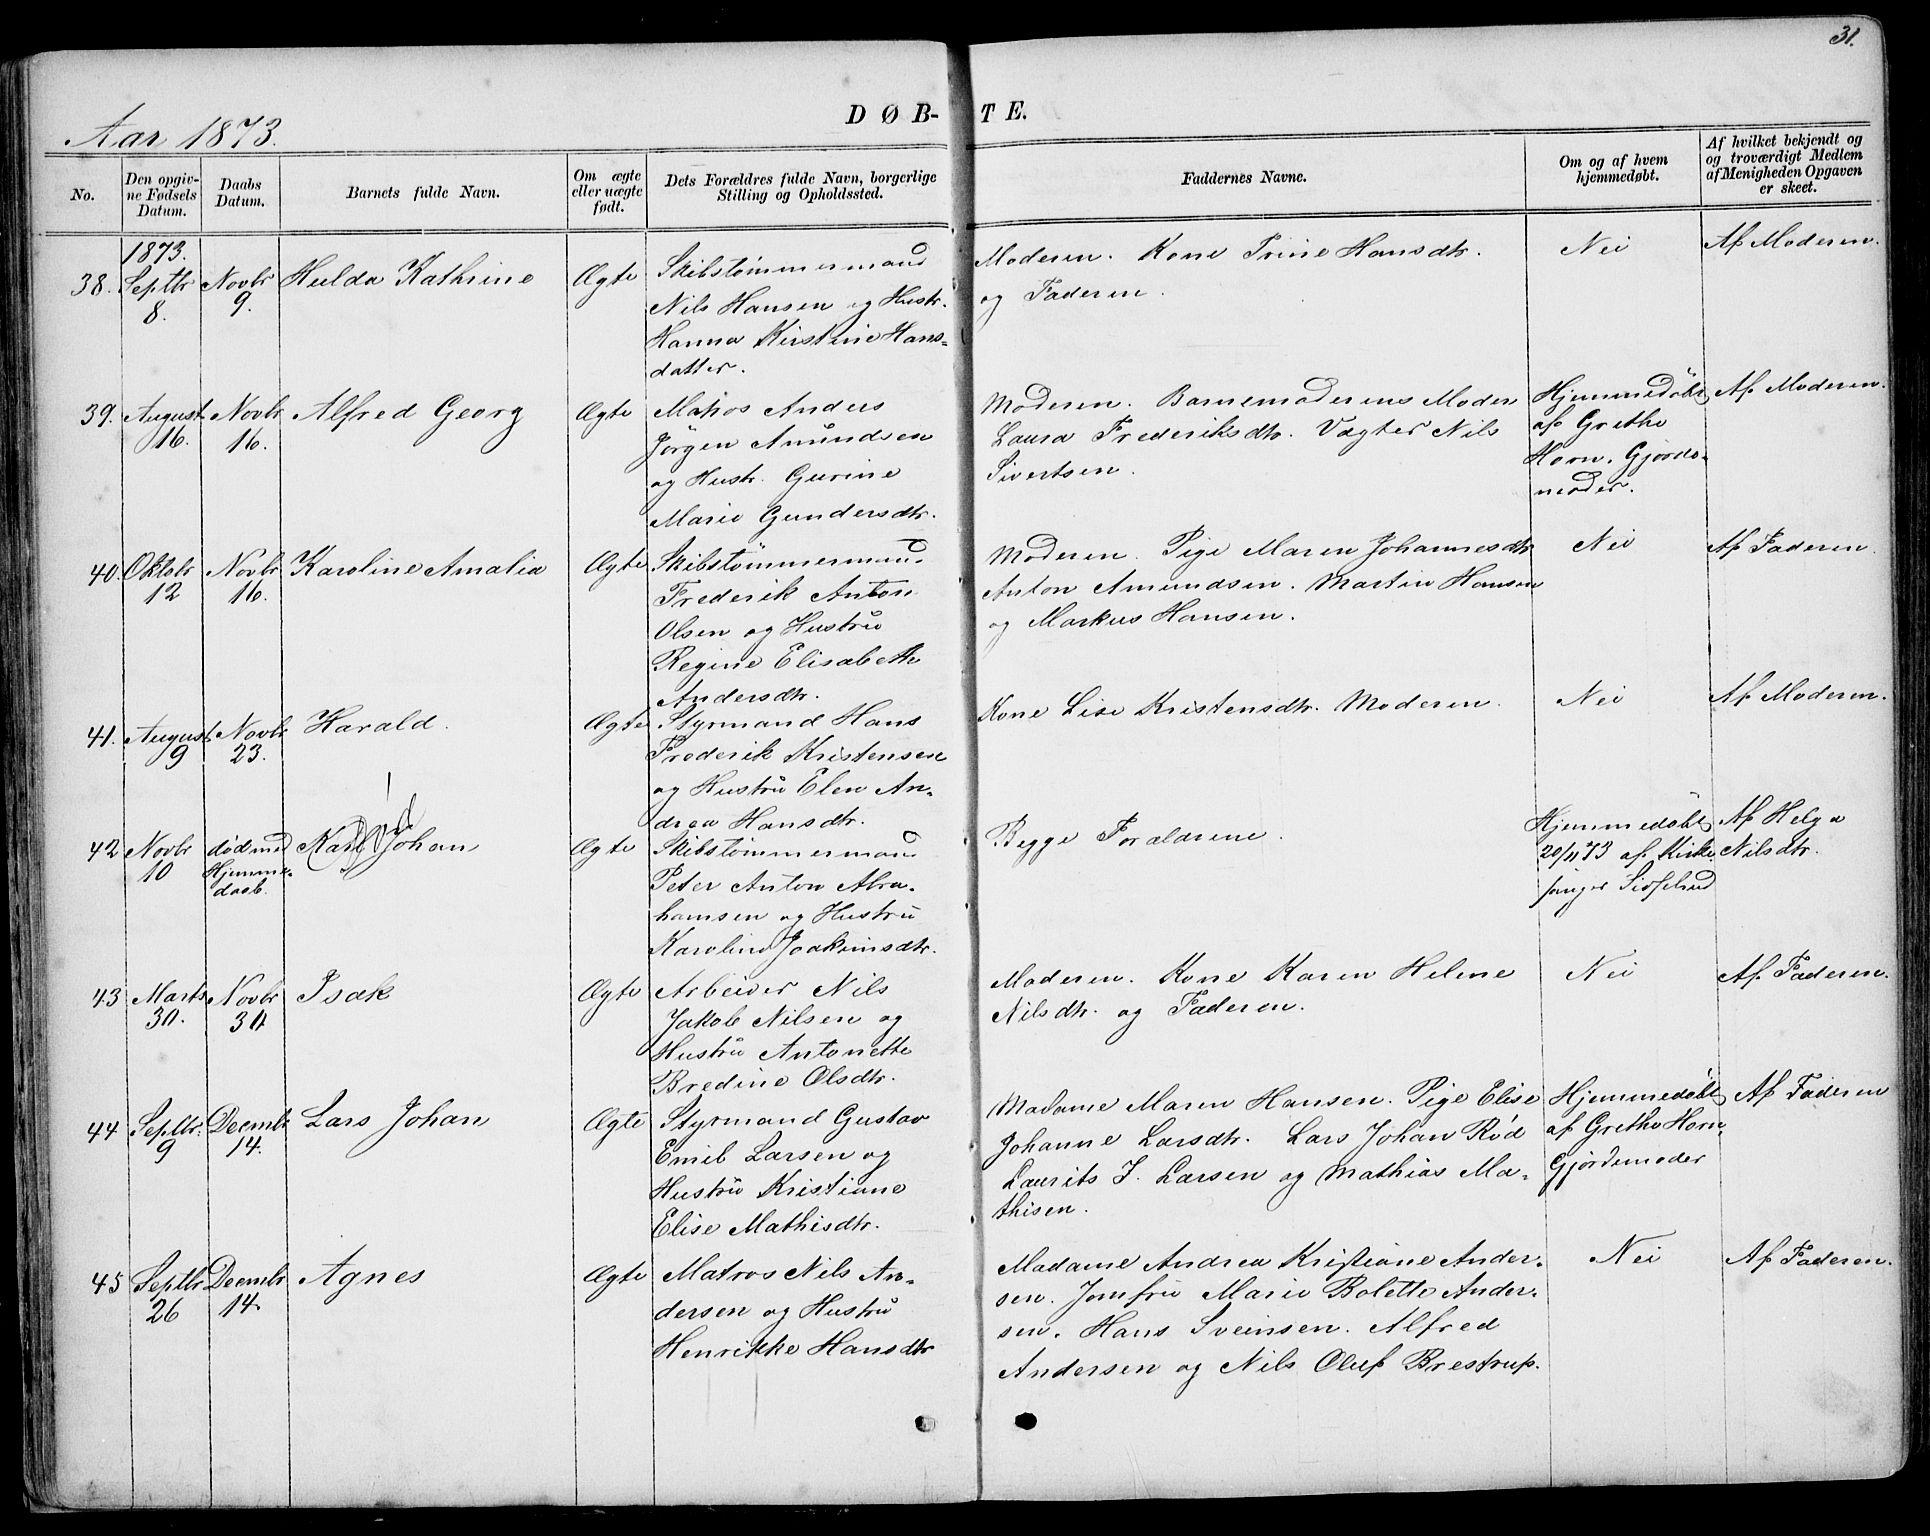 31.
Aar 1873.
DØB-TE.
No.
Den opgiv-
ne Fødsels
Datum.
Daabs
Datum.
Barnets fulde Navn.
Om ægte
eller uægte
født.
Dets Forældres fulde Navn, borgerlige
Stilling og Opholdssted.
Faddernes Navne.
Om og af hvem
hjemmedøbt.
Af hvilket bekjendt og
og troværdigt Medlem
af Menigheden Opgaven
er skeet.
38.
1873.
Septbr
8.
Novbr
9.
Hulda Kathrine
Ægte
Skibstömmermand
Nils Hansen og Hustr.
Hanna Kirstine Hans-
datter.
Moderen. Kone Trine Hansdtr.
og Faderen.
Nei
Af Moderen.
39.
August
16.
Novbr
16.
Alfred Georg
Ægte
Matros Anders
Jörgen Amundsen
og Hustr. Gurine
Marie Gundersdtr.
Moderen. Barnemoderens Moder
Laura Frederiksdtr. Vagter Nils
Sivertsen.
Hjemmedöbt
af Grethe
Horn. Gjorde-
moder.
Af Moderen.
40.
Oktobr
12
Novbr
16.
Karoline Amalia
Ægte
Skibstömmermand
Frederik Anton
Olsen og Hustru
Regine Elisabeth
Andersdtr.
Moderen. Pige Maren Johannesdtr
Anton Amundsen. Martin Hansen
og Markus Hansen.
Nei
Af Faderen.
41.
August
9
Novbr
23.
Harald.
Ægte
Styrmand Hans
Frederik Kristensen
og Hustru Elen An-
drea Hansdtr.
Kone Lise Kristensdtr. Moderen.
Nei
Af Moderen.
42
Novbr
10
død med
Hjemme-
daab.
Död
Karl Johan
Ægte
Skibstömmermand
Peter Anton Abra-
hamsen og Hustru
Karoline Joakimsdtr.
Begge Foraldrene.
Hjemmedöbt
20/11 73 af Kirke
sanger
Af Helga
Nilsdtr.
43
Marts
30.
Novbr
30
Isak
Ægte
Arbeider Nils
Jakob Nilsen og
Hustru Antonette
Bredine Olsdtr.
Moderen. Kone Karen Helene
Nilsdtr. og Faderen.
Nei
Af Faderen.
44
Septbr.
9
Decmbr
14.
Lars Johan
Ægte
Styrmand Gustav
Emil Larsen og
Hustru Kristiane
Elise Mathisdtr.
Madame Maren Hansen. Pige Elise
Johanne Larsdtr. Lars Johan Rød
Laurits J. Larsen og Mathias Ma-
thisen.
Hjemmedöbt
af Grethe Horn,
Gjördemoder
Af Faderen
45
Septbr
26
Decmbr
14.
Agnes
Ægte
Matros Nils An-
dersen og Hustru
Henrikke Hansdtr
Madame Andrea Kristiane Ander-
sen. Jomfru Marie Bolette Ander-
sen. Hans Sveinsen. Alfred
Andersen og Nils Oluf Brestrup.
Nei
Af Faderen.